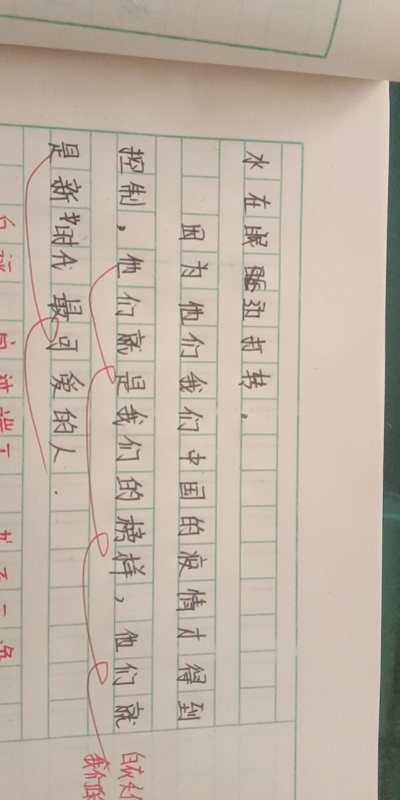 水在眼眶边打转。
因为他们我们中国的疫情才得到
控制，他们就是我们的榜样，他们就
是新时代最可爱的人.